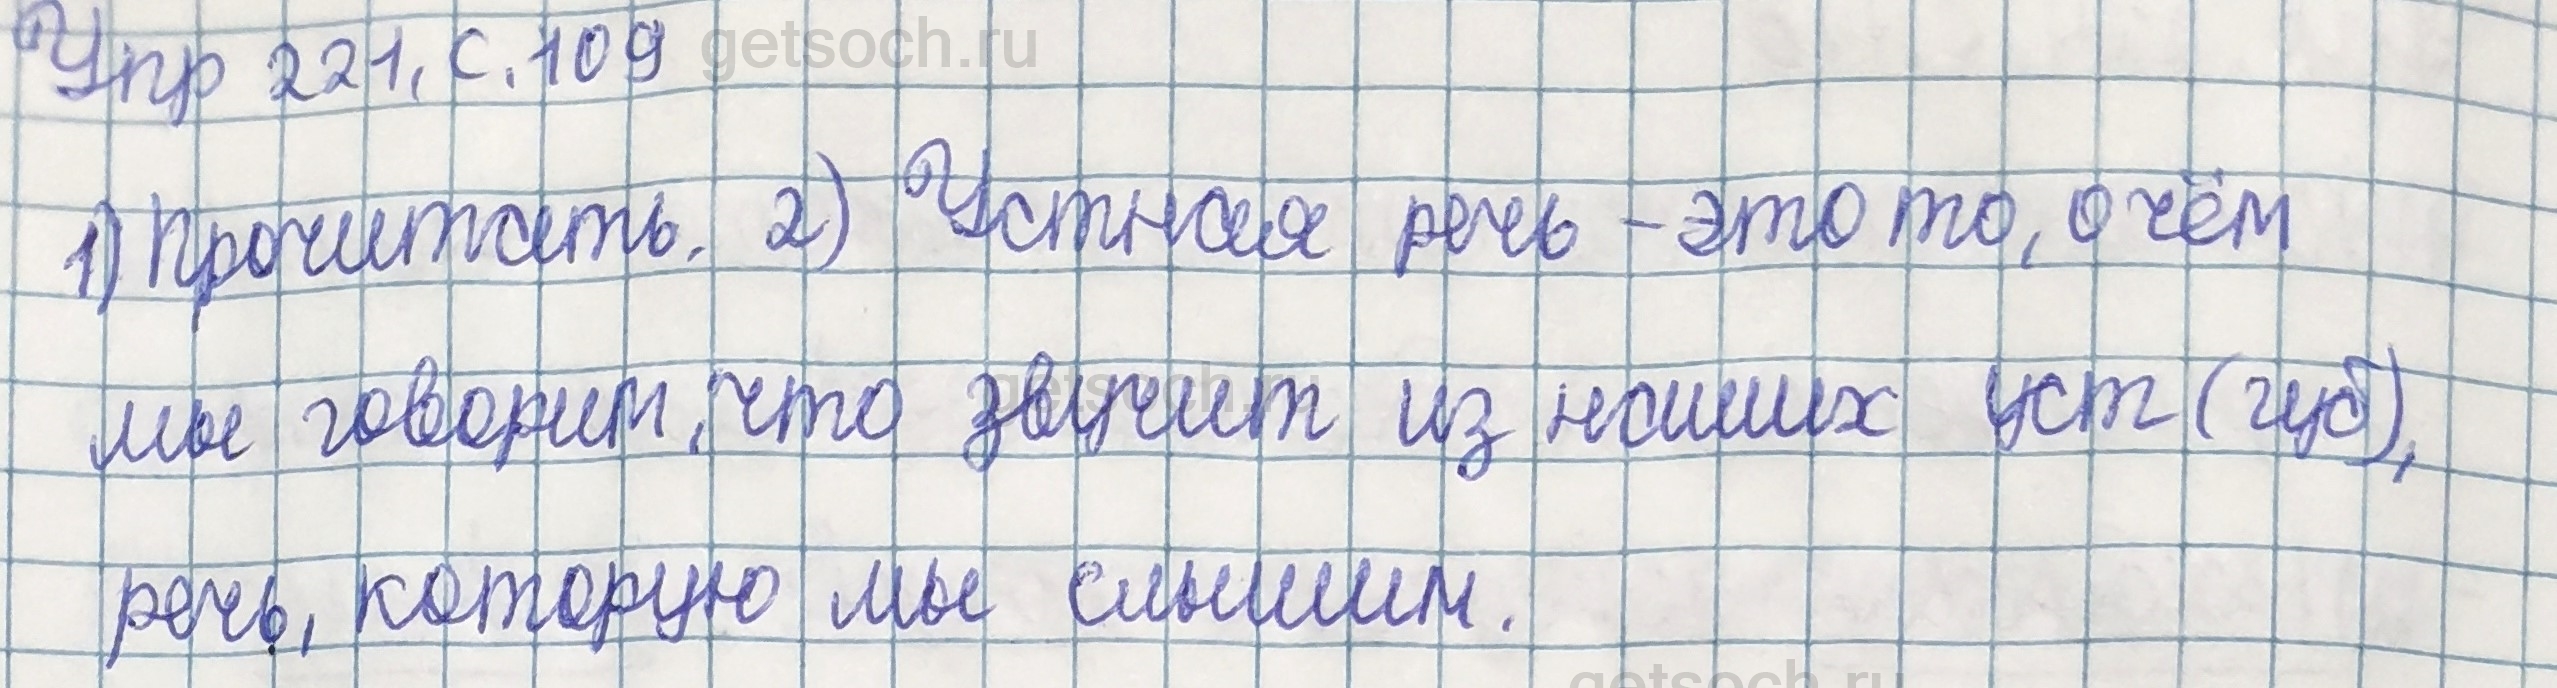 Упр 221, с. 109 getsoch.ru
1) Прочитать. 2) Устная речь – это то, о чём
мы говорим, что звучит из наших уст (губ),
getsoch.ru
речь, которую мы слышим.
getsoch.ru